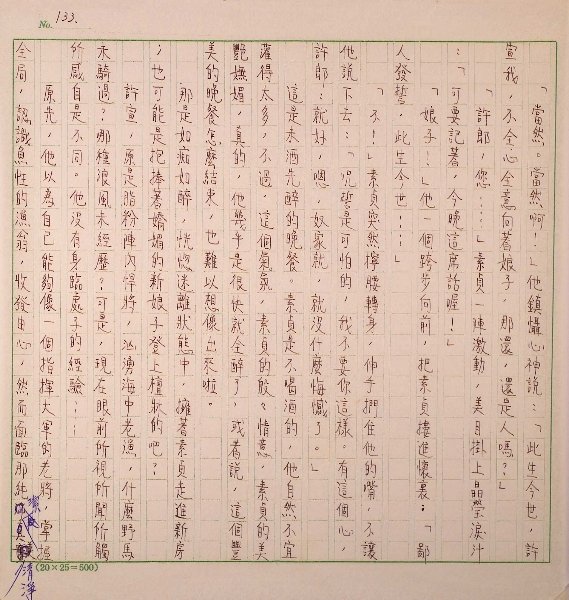 No. 133.
「當然。當然啊!」他鎮懾心神說:「此生今世,許
宣我,不全心全意向著娘子,那還,還是人嗎?」
「許郎,您……」素貞一陣激動,美目掛上晶瑩淚汁
:「可要記著,今晚這席話喔!」
「娘子!」他一個跨步向前,把素貞摟進懷裏;「鄙
人發誓,此生今世……」
「不!」素貞突然擰腰轉身,伸手捫住他的嘴,不讓
他說下去:「咒誓是可怕的,我不要你這樣。有這個心,
許郎:就好,嗯,奴家就,就沒什麼悔憾了。」
這是未酒先醉的晚餐。素貞是不喝酒的,他自然不宜
灌得太多,不過,這個氣氛,素貞的殷殷情意,素貞的美
艷嫵媚,真的,他幾乎是很快就全醉了;或者說,這個豐
美的晚餐怎麼結束,也難以想像出來啦。
那是如痴如醉,恍惚迷離狀態中,擁著素貞走進新房
;也可能是抱捧著嬌媚的新娘子登上檀牀的吧?
許宣,原是脂粉陣內悍將,洶湧海中老漁,什麼野馬
未騎過?哪種浪風未經歷?可是,現在眼前所視所聞所觸
所感自是不同。他沒有身臨處子的經驗……
原先,他以為自己能夠像一個指揮大軍的老將,掌握
全局,認識魚性的漁翁,收發由心,然而面臨那純
清淨
(20×25=500)